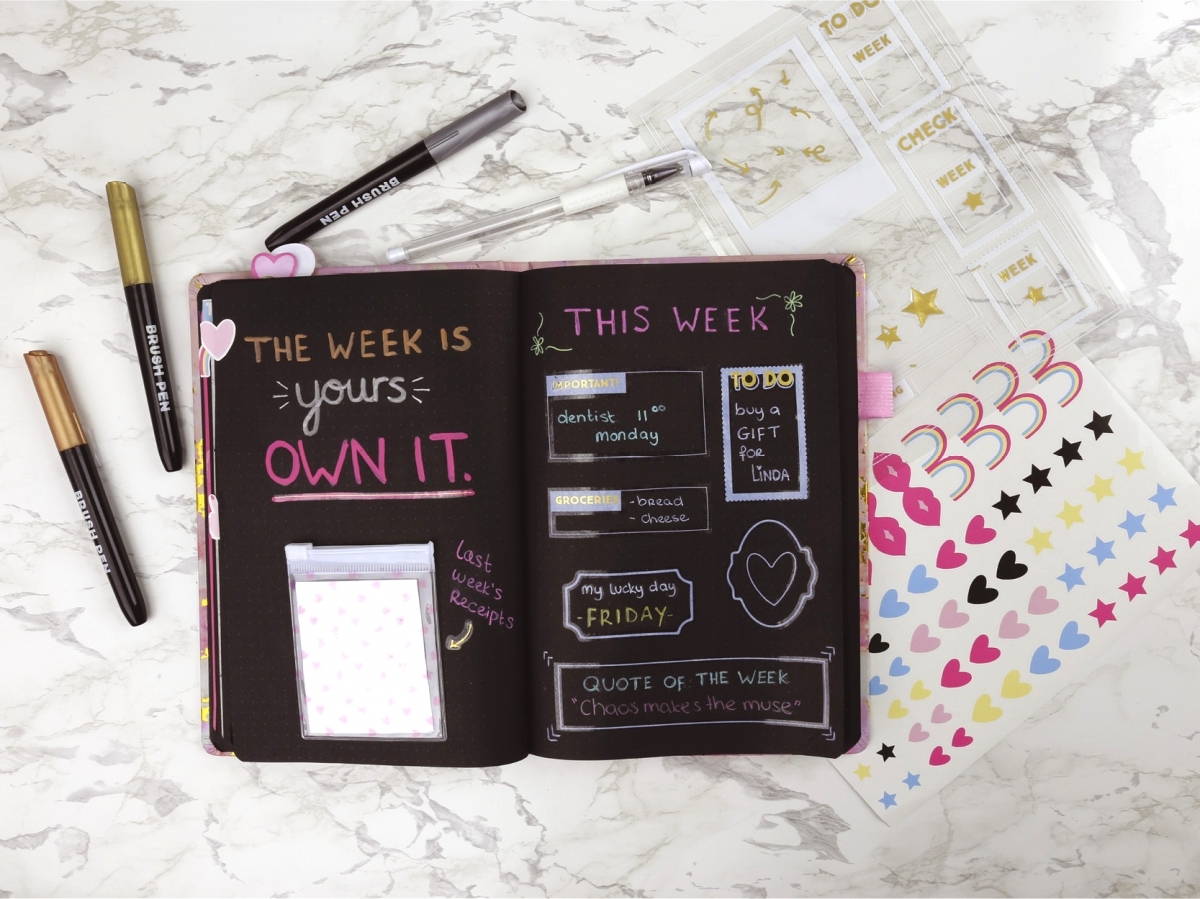 TO DO
WEEK
CHECK
WEEK
WEEK
BRUSH PEN
BRUSH PEN
BRUSH PEN
THE WEEK IS
yours
OWN IT.
Last
week's
Receipts
THIS WEEK
IMPORTANT
dentist 11⁰⁰
monday
TO DO
buy a
GIFT
for
LiNDA
GROCERIES
-bread
- cheese
my lucky day
-FRIDAY-
QUOTE OF THE WEEK
"Chaos makes the muse"